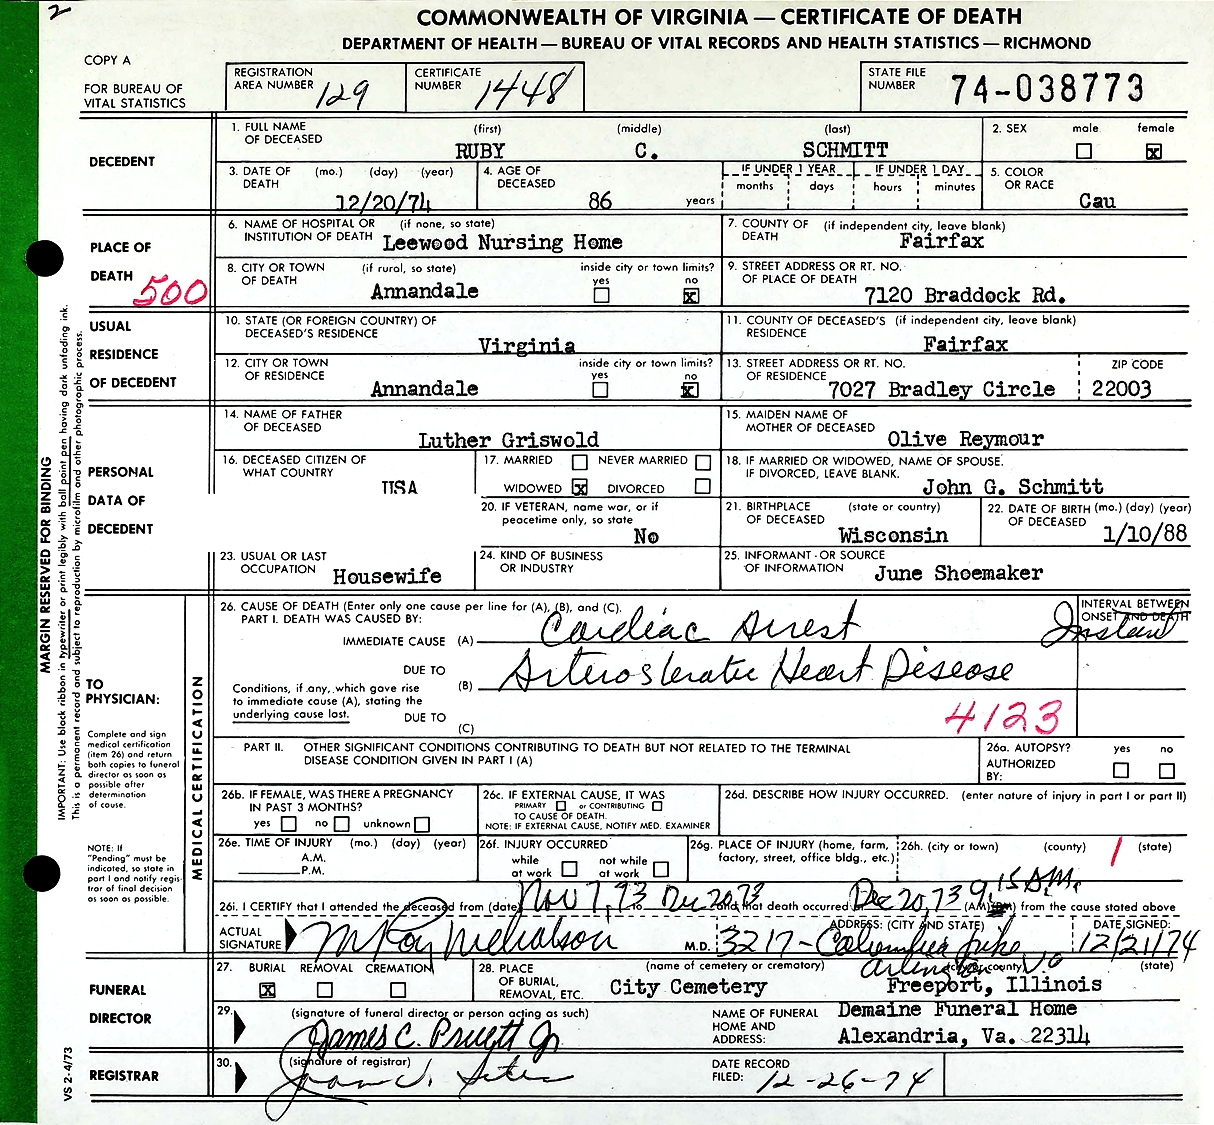 2
COMMONWEALTH OF VIRGINIA — CERTIFICATE OF DEATH
DEPARTMENT OF HEALTH — BUREAU OF VITAL RECORDS AND HEALTH STATISTICS — RICHMOND
COPY A
FOR BUREAU OF VITAL STATISTICS
REGISTRATION AREA NUMBER 129
CERTIFICATE NUMBER 1448
STATE FILE NUMBER 74-038773
DECEDENT
1. FULL NAME OF DECEASED (first) (middle) (last)
RUBY C. SCHMITT
2. SEX male female x
3. DATE OF DEATH (mo.) (day) (year) 12/20/74
4. AGE OF DECEASED 86 years
IF UNDER 1 YEAR months days
IF UNDER 1 DAY hours minutes
5. COLOR OR RACE Cau
PLACE OF DEATH 500
6. NAME OF HOSPITAL OR INSTITUTION OF DEATH (if none, so state) Leewood Nursing Home
7. COUNTY OF DEATH (if independent city, leave blank) Fairfax
8. CITY OR TOWN OF DEATH (if rural, so state) Annandale
inside city or town limits? yes no x
9. STREET ADDRESS OR RT. NO. OF PLACE OF DEATH 7120 Braddock Rd.
USUAL RESIDENCE OF DECEDENT
10. STATE (OR FOREIGN COUNTRY) OF DECEASED'S RESIDENCE Virginia
11. COUNTY OF DECEASED'S RESIDENCE (if independent city, leave blank) Fairfax
12. CITY OR TOWN OF RESIDENCE Annandale
inside city or town limits? yes no x
13. STREET ADDRESS OR RT. NO. OF RESIDENCE 7027 Bradley Circle
ZIP CODE 22003
PERSONAL DATA OF DECEDENT
14. NAME OF FATHER OF DECEASED Luther Griswold
15. MAIDEN NAME OF MOTHER OF DECEASED Olive Reymour
16. DECEASED CITIZEN OF WHAT COUNTRY USA
17. MARRIED NEVER MARRIED
WIDOWED x DIVORCED
18. IF MARRIED OR WIDOWED, NAME OF SPOUSE. IF DIVORCED, LEAVE BLANK. John G. Schmitt
20. IF VETERAN, name war, or if peacetime only, so state No
21. BIRTHPLACE OF DECEASED (state or country) Wisconsin
22. DATE OF BIRTH OF DECEASED (mo.) (day) (year) 1/10/88
23. USUAL OR LAST OCCUPATION Housewife
24. KIND OF BUSINESS OR INDUSTRY
25. INFORMANT OR SOURCE OF INFORMATION June Shoemaker
MARGIN RESERVED FOR BINDING
IMPORTANT: Use black ribbon in typewriter or print legibly with ball point pen having dark unfading ink.
This is a permanent record and subject to reproduction by microfilm and other photographic process.
TO PHYSICIAN:
Complete and sign medical certification (item 26) and return both copies to funeral director as soon as possible after determination of cause.
NOTE: If "Pending" must be indicated, so state in part I and notify registrar of final decision as soon as possible.
MEDICAL CERTIFICATION
26. CAUSE OF DEATH (Enter only one cause per line for (A), (B), and (C).
PART I. DEATH WAS CAUSED BY:
IMMEDIATE CAUSE (A) Cardiac Arrest
INTERVAL BETWEEN ONSET AND DEATH Instant
DUE TO (B) Arterosleratic Heart Disease
Conditions, if any, which gave rise to immediate cause (A), stating the underlying cause last.
DUE TO (C)
4123
PART II. OTHER SIGNIFICANT CONDITIONS CONTRIBUTING TO DEATH BUT NOT RELATED TO THE TERMINAL DISEASE CONDITION GIVEN IN PART I (A)
26a. AUTOPSY? yes no
AUTHORIZED BY:
26b. IF FEMALE, WAS THERE A PREGNANCY IN PAST 3 MONTHS?
yes no unknown
26c. IF EXTERNAL CAUSE, IT WAS
PRIMARY or CONTRIBUTING
TO CAUSE OF DEATH.
NOTE: IF EXTERNAL CAUSE, NOTIFY MED. EXAMINER
26d. DESCRIBE HOW INJURY OCCURRED. (enter nature of injury in part I or part II)
26e. TIME OF INJURY (mo.) (day) (year)
A.M.
P.M.
26f. INJURY OCCURRED
while at work not while at work
26g. PLACE OF INJURY (home, farm, factory, street, office bldg., etc.)
26h. (city or town) (county) (state)
1
26i. I CERTIFY that I attended the deceased from (date) Nov 7, 73 to Dec 20, 73 and that death occurred Dec 20, 73 9.15 A.M. (AM) (PM) from the cause stated above
ACTUAL SIGNATURE McKoy Nicholson M.D.
ADDRESS: (CITY AND STATE) 3217- Columbia Pike Arlington Va
DATE SIGNED: 12/21/74
FUNERAL DIRECTOR
27. BURIAL x REMOVAL CREMATION
28. PLACE OF BURIAL, REMOVAL, ETC. (name of cemetery or crematory) (city or county) (state)
City Cemetery Freeport, Illinois
29. (signature of funeral director or person acting as such)
James C. Pruett Jr
NAME OF FUNERAL HOME AND ADDRESS: Demaine Funeral Home
Alexandria, Va. 22314
REGISTRAR
30. (signature of registrar)
DATE RECORD FILED: 12-26-74
VS 2-4/73